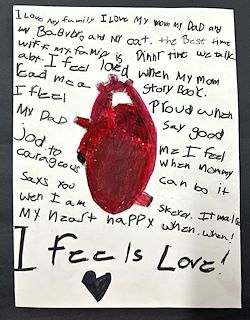 I Love my family I Love My mom my Dad any
my Babyer, and my cat. the Best time
with my family is Dinnr time we talk
abt. I feel loed when My Mom
Read me a Story Book.
I fleel Proud when
My DaD say good
jod to me I feel
courageous when mommy
Saxs you can bo it
wen I am It makes
MY heart happy when. when!
I feels Love!